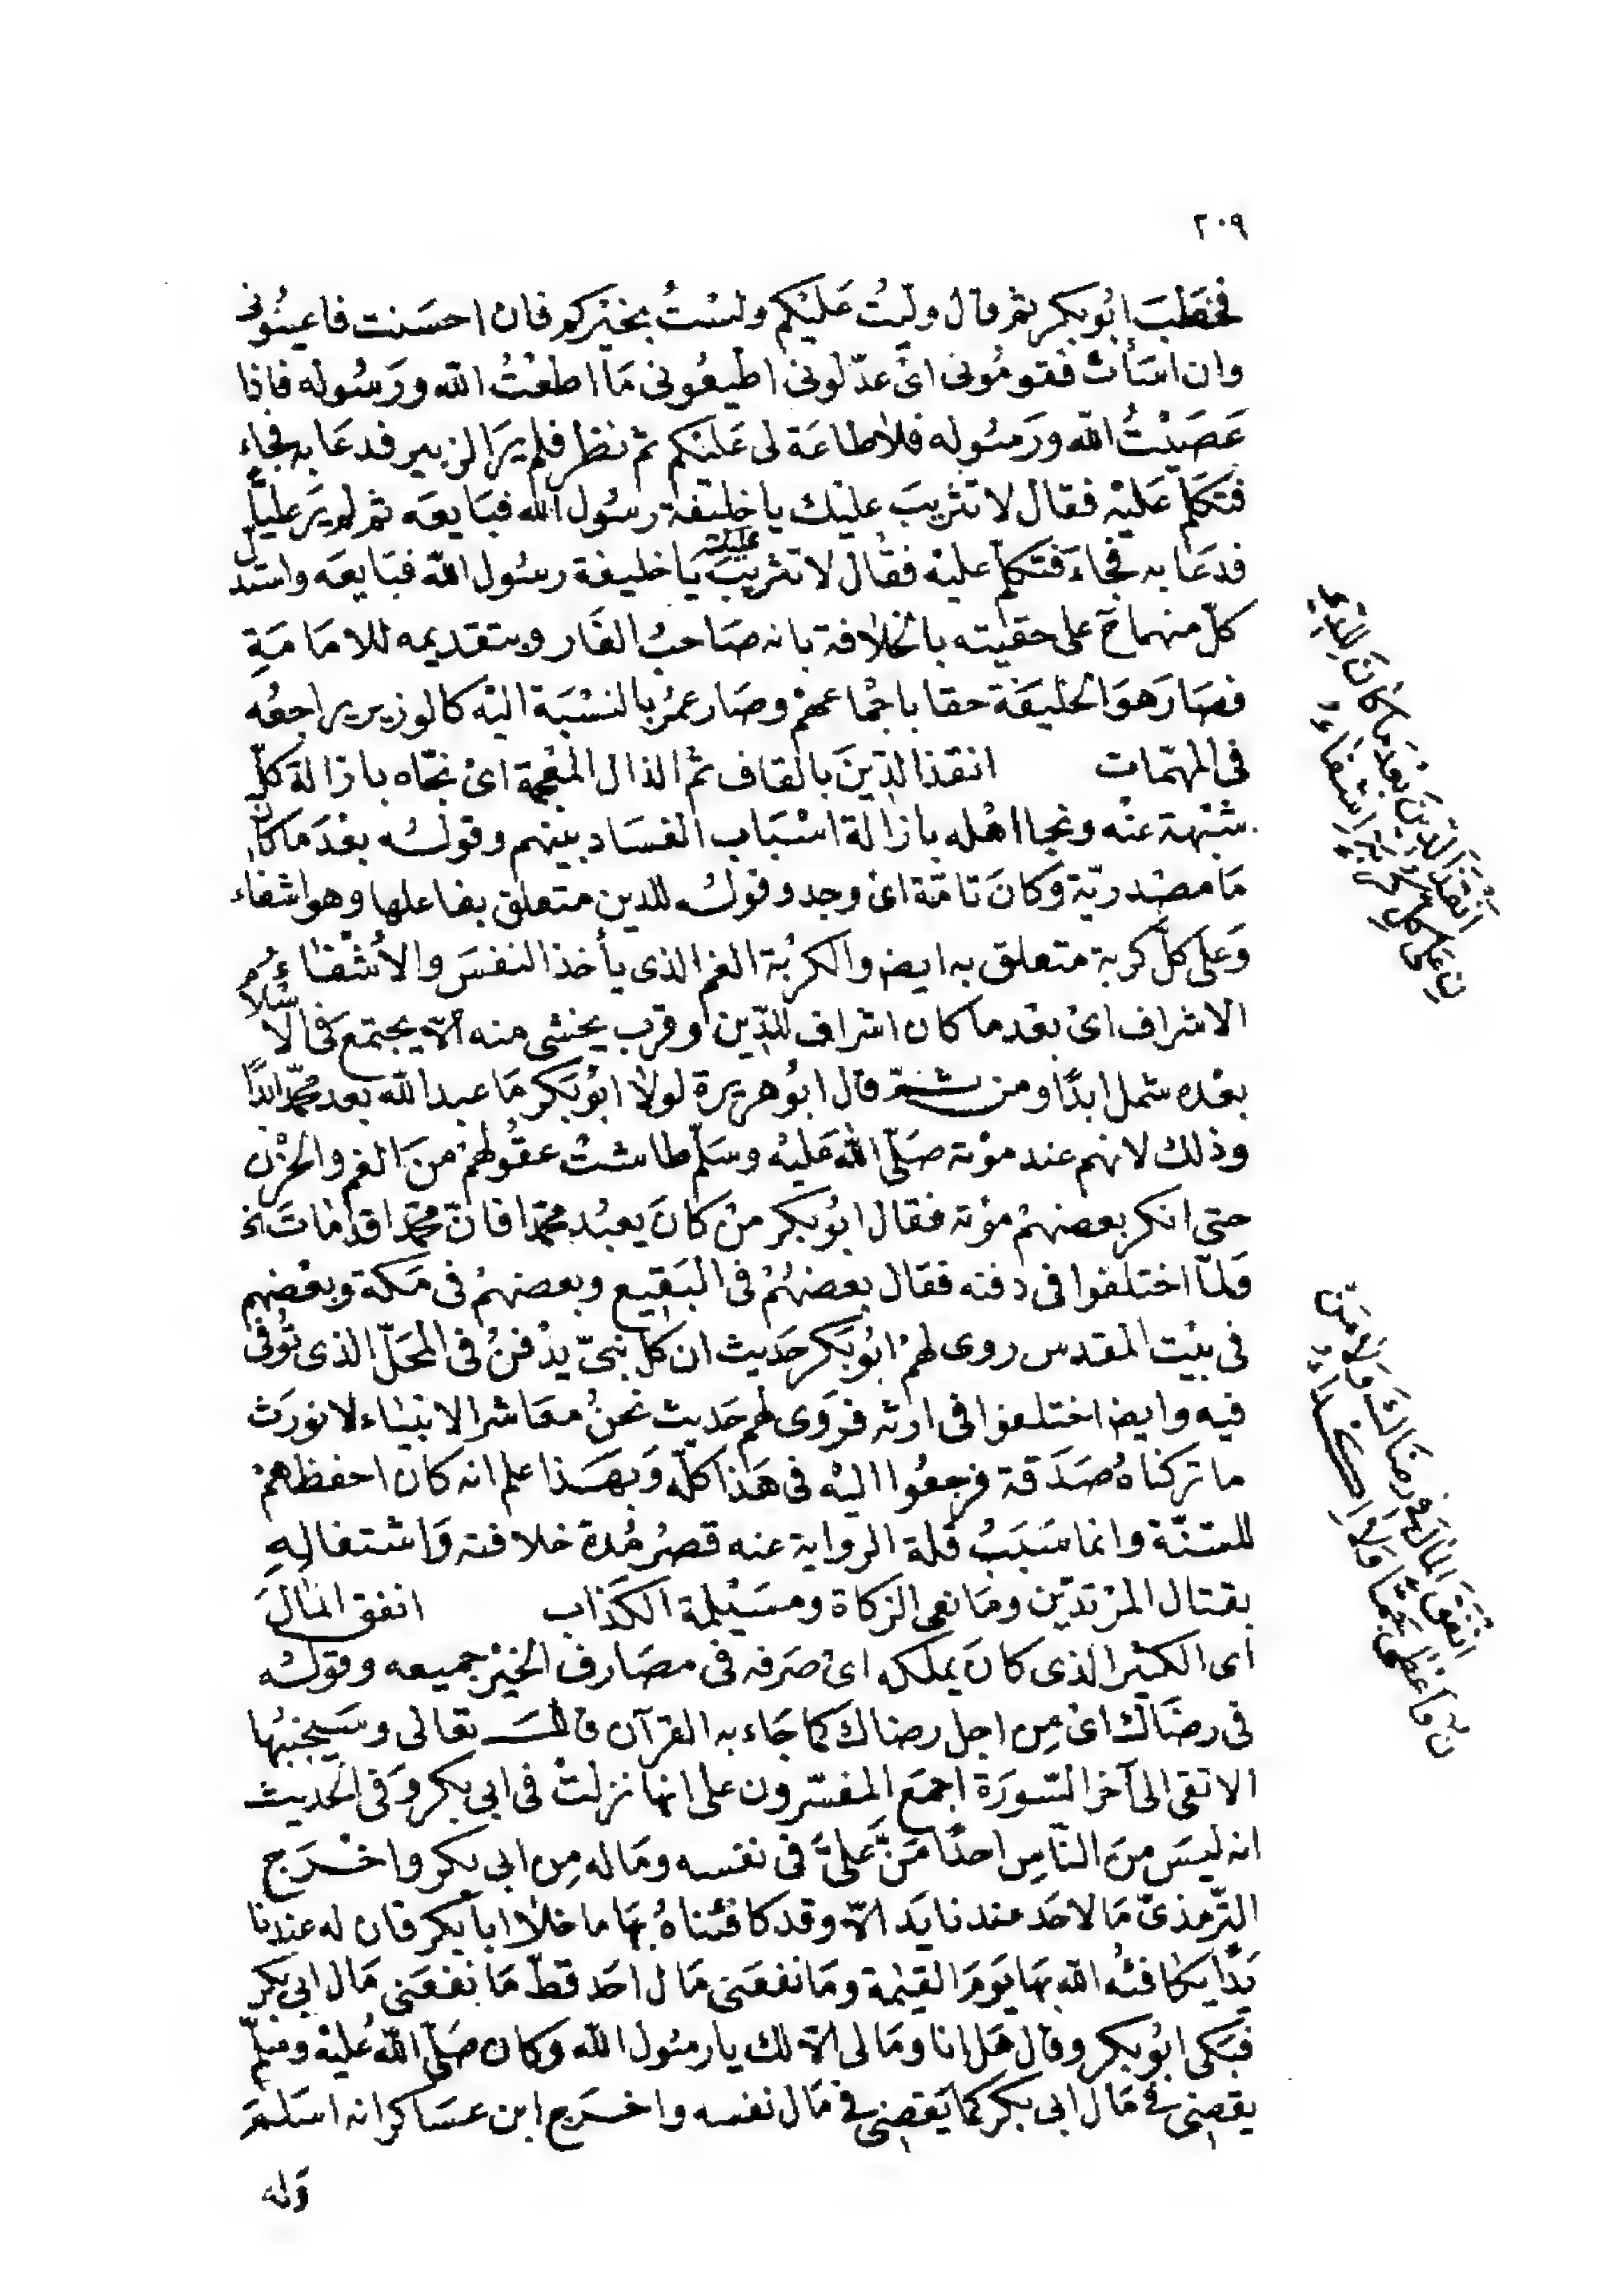 ٢٠٩
فخطَبَ ابُوبكر ثم قال وليتُ عَليْكم ولسْتُ بخيْركم فان احسَنت فاعينُونى
وان اسَأت فقومُونى اىْ عدّلونى اطيعُونى مَا اطعْتُ الله ورَسُوله فاذا
عَصَيْتُ الله ورَسُوله فلاطاعَة لى عَليْكم ثم نظر فلم يرَ الزبير فدعَا به فجاء
فتكلم عَليْه فقال لا تثريبَ عليك يا خليفة رسُول الله فبَايعَه ثم لم يَر عليّا
فدعَا به فجاءَ فتكلم عليْه فقال لا تثريبَ عليك يَا خليفة رسُول الله فبَايعَه واستدل
كلّ منهما ح على حقيته بالخلافة بانه صَاحبُ الغَار وبتقديمه للامَامَةِ
فصَارَ هوَ الخليفَة حقا باجْماعهمْ وصَار عمرُ بالنسْبَة اليْه كالوزير يراجعُه
فى المهمّات انقذ الدّينَ بالقاف ثم الذال المعْجمة اىْ نجّاه بازالة كلّ
شبْهة عنْه ونجا اهْله بازالة اسْبَاب الفسَاد بينهم وقولُه بعْدَ ماكان
مَا مصْدريّة وَكانَ تامّة اىْ وجد وقولُه للدين متعلق بفاعلها وهو اشفاء
وَعلى كلّ كربة متعلق به ايضا والكرْبة الغم الذى يأخذ النفسَ والاشْفاءُ
الاشراف اىْ بعْدما كان اشراف للدّين اوقرب يخشى منه الاّ يجتمعَ فى الاسْلام
بعْده شمل ابدًا ومن ثمّ قال ابُوهريرة لولا ابُوبَكر مَا عبد الله بعد محمّد ابدًا
وذلك لانهم عند موْته صَلّى الله عَليْه وسَلّم طاشتْ عقُولهمْ منَ الغم والحزْن
حتى انكر بعضهمْ موْته فقال ابُوبكر منْ كانَ يعبُد محمّدا فانّ محمّدا قد مَاتَ الخ
وَلمّا اختلفوا فى دفنه فقال بعضهُمْ فى البَقيع وبعضهمْ فى مَكة وبعْضهم
فى بيْت المقدس روى لهمْ ابُوبَكر حَديث ان كلّ نبىّ يدْفنُ فى المحَلّ الذى تُوفى
فيه وايضا اختلفوا فى ارثه فرَوى لهم حَديث نحْنُ معَاشر الانبيَاء لا نورَث
ما تركناهُ صَدَقة فرجعُوا اليْه فى هَذا كلّه وَبهَذا علم انه كان احفظهمْ
للسنّة وانما سَبَبُ قلة الرواية عنه قصرُ مُدة خلافته وَاشتغالِهِ
بقتال المرْتدّين ومَانعى الزكاة ومسَيْلمة الكَذاب انفق المَالَ
اى الكثير الذى كانَ يملكه اىْ صَرفه فى مصَارف الخيْر جميعه وقولُه
فى رضَاك اىْ مِن اجل رضاك كما جَاء به القرآن قالَ تعالى وسَيجنبُها
الاتقى الى آخر السّورَة اجمعَ المفسّرون على انها نزلتْ فى ابى بكر وَفى الحديث
انه ليسَ منَ النّاسِ احدًا مَنَّ عَلىَّ فى نفسه ومَاله مِن ابى بكر واخْرَج
التّرمذىّ مَا لاحَد عندنا يَد الاّ وقد كافئناهُ بهَا ما خلا ابا بكر فان له عندنا
يَدًا يكافئه الله بهَا يَومَ القيٰمة ومَا نفعَنى مَال احَد قطّ مَا نفعَنى مَال ابى بَكر
فبَكى ابُوبكر وقال هَل انا ومَالى الاّ لك يا رسُول الله وكان صَلّى الله عَليْه وسَلّم
يقضى فى مَال ابى بكر كما يَقضى فى مَال نفسه واخرَج ابن عسَاكر انه اسْلمَ
وَله
أنْقَذَ الدِّينَ بَعْدَ مَا كَانَ لِلدِّي
نِ عَلَى كُلِّ كُرْبَةٍ إشْفَاءُ
أنْفَقَ المَالَ فِي رِضَاكَ وَلَا مَنّ
نٌ وَأعْطَى جَمًّا وَلَا إكْدَاءُ